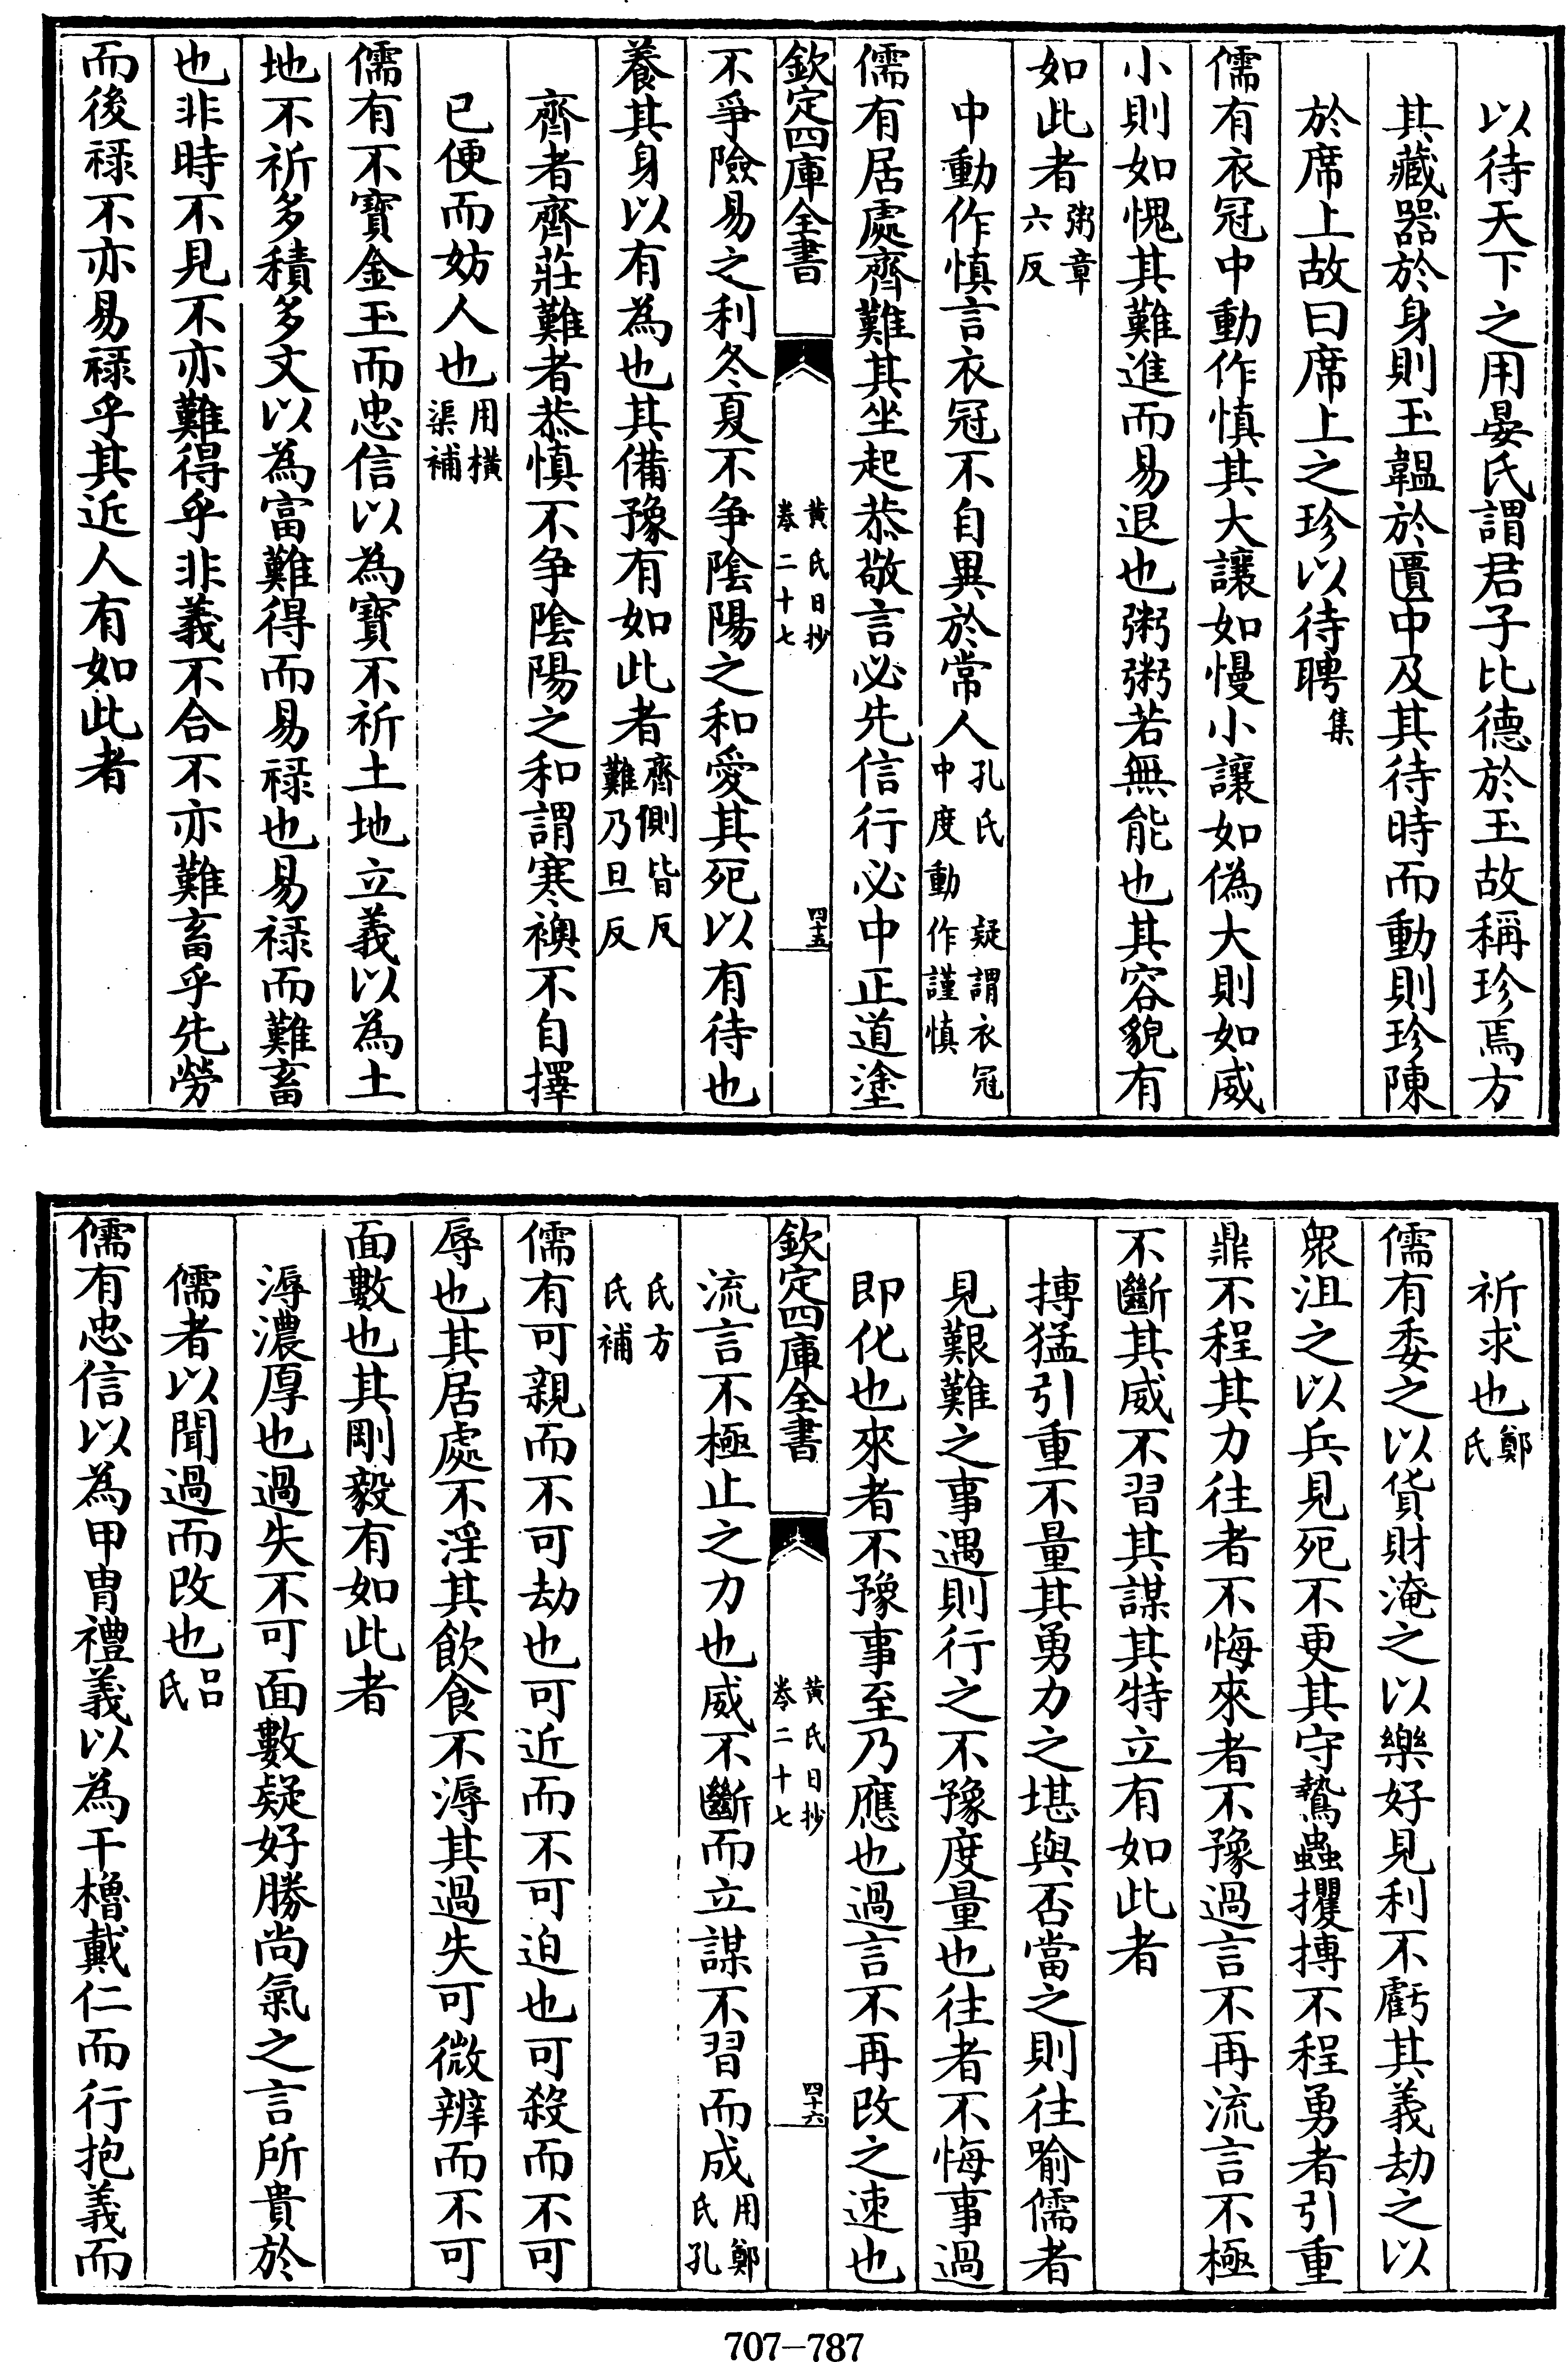 以待天下之用晏氏謂君子比德於玉故稱珍焉方
其藏器於身則玉韞於匵中及其待時而動則珍陳
於席上故曰席上之珍以待聘集
儒有衣冠中動作慎其大讓如慢小讓如偽大則如威
小則如愧其難進而易退也粥粥若無能也其容貌有
如此者粥章六反
中動作慎言衣冠不自異於常人孔氏疑謂衣冠中度動作謹慎
儒有居處齊難其坐起恭敬言必先信行必中正道塗
欽定四庫全書 黄氏日抄卷二十七 四十五
不爭險易之利冬夏不争陰陽之和愛其死以有待也
養其身以有為也其備豫有如此者齊側皆反難乃旦反
齊者齊莊難者恭慎不争陰陽之和謂寒襖不自擇
已便而妨人也用横渠補
儒有不寶金玉而忠信以為寶不祈土地立義以為土
地不祈多積多文以為富難得而易禄也易禄而難畜
也非時不見不亦難得乎非義不合不亦難畜乎先勞
而後禄不亦易禄乎其近人有如此者
祈求也鄭氏
儒有委之以貨財淹之以樂好見利不虧其義劫之以
衆沮之以兵見死不更其守鷙蟲攫搏不程勇者引重
鼎不程其力往者不悔來者不豫過言不再流言不極
不斷其威不習其謀其特立有如此者
搏猛引重不量其勇力之堪與否當之則往喻儒者
見艱難之事遇則行之不豫度量也往者不悔事過
即化也來者不豫事至乃應也過言不再改之速也
欽定四庫全書 黄氏日抄卷二十七 四十六
流言不極止之力也威不斷而立謀不習而成用鄭氏孔
氏方氏補
儒有可親而不可劫也可近而不可迫也可殺而不可
辱也其居處不淫其飲食不溽其過失可微辨而不可
面數也其剛毅有如此者
溽濃厚也過失不可面數疑好勝尚氣之言所貴於
儒者以聞過而改也呂氏
儒有忠信以為甲胄禮義以為干櫓戴仁而行抱義而
707-787